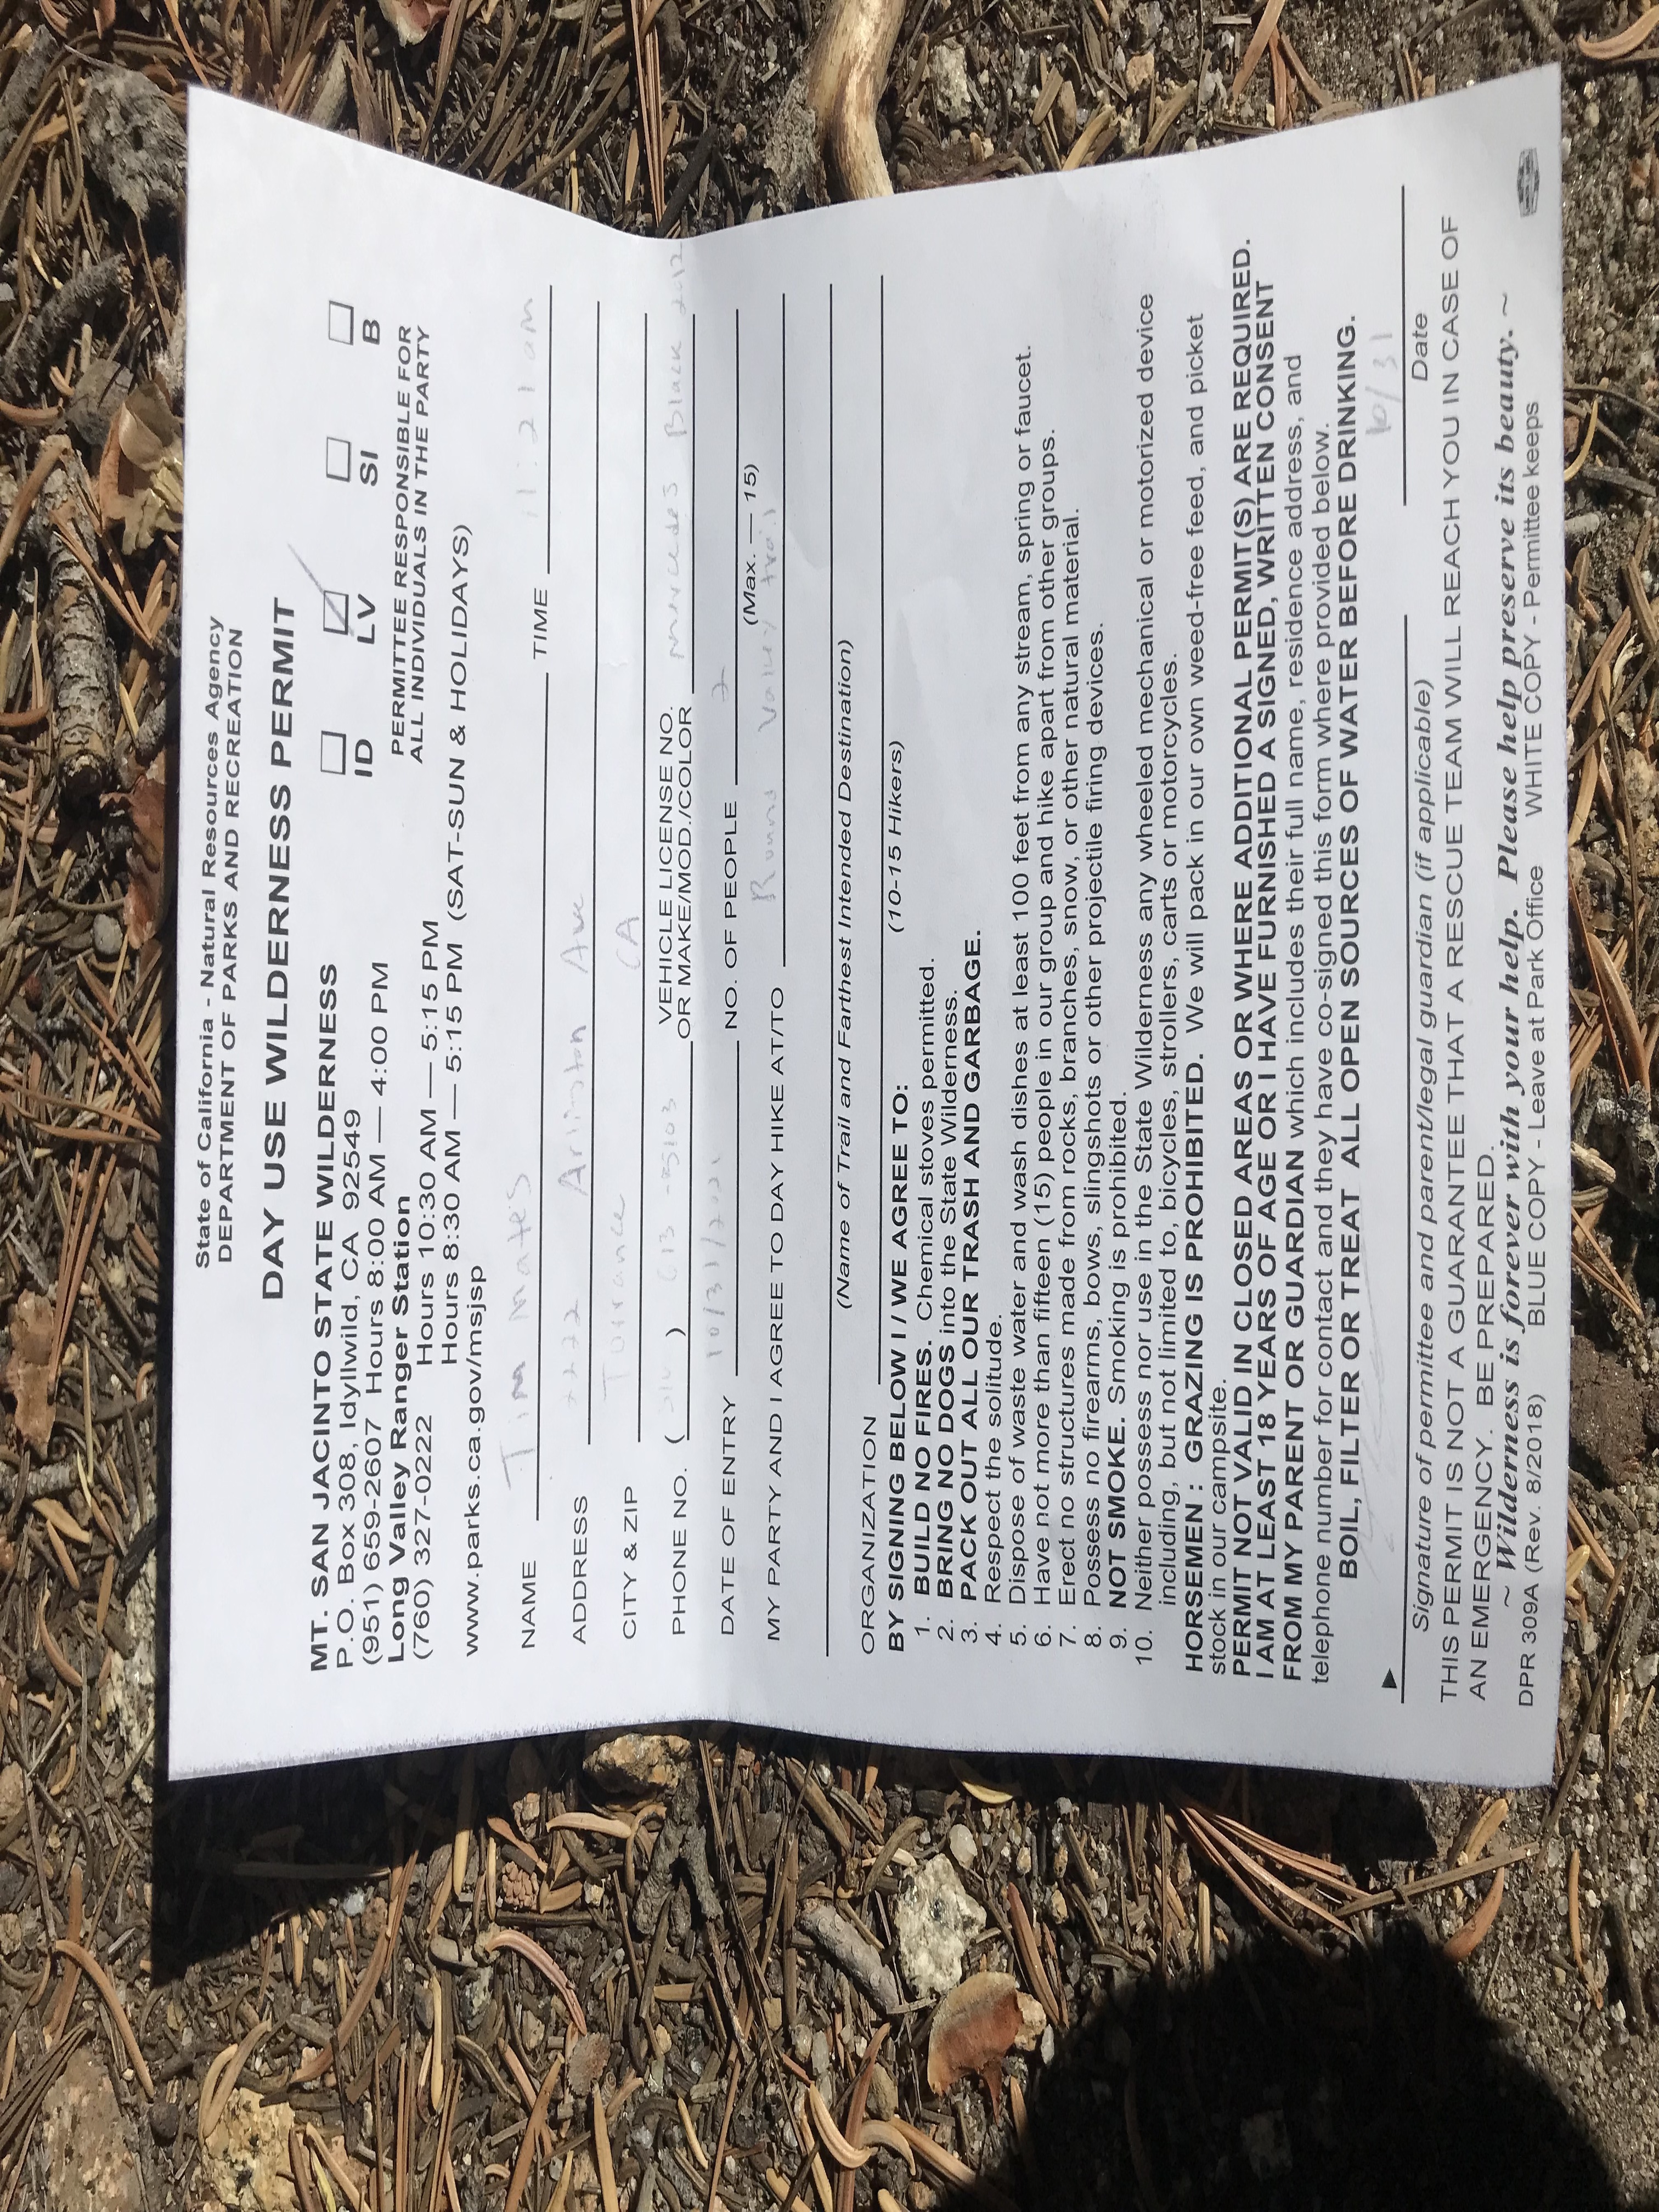 State of California - Natural Resources Agency
DEPARTMENT OF PARKS AND RECREATION
DAY USE WILDERNESS PERMIT
MT. SAN JACINTO STATE WILDERNESS
P.O. Box 308, Idyllwild, CA 92549
(951) 659-2607 Hours 8:00 AM — 4:00 PM
ID LV SI B
Long Valley Ranger Station
(760) 327-0222 Hours 10:30 AM — 5:15 PM
Hours 8:30 AM — 5:15 PM (SAT-SUN & HOLIDAYS)
PERMITTEE RESPONSIBLE FOR
ALL INDIVIDUALS IN THE PARTY
www.parks.ca.gov/msjsp
NAME Tim Mates TIME 11:21 am
ADDRESS Arlington Ave
CITY & ZIP Torrance CA
PHONE NO. ( ) VEHICLE LICENSE NO.
OR MAKE/MOD./COLOR Mercedes Black 2012
DATE OF ENTRY 10/31/2021 NO. OF PEOPLE 2
(Max. — 15)
MY PARTY AND I AGREE TO DAY HIKE AT/TO Round Valley trail
(Name of Trail and Farthest Intended Destination)
ORGANIZATION
(10-15 Hikers)
BY SIGNING BELOW I / WE AGREE TO:
1. BUILD NO FIRES. Chemical stoves permitted.
2. BRING NO DOGS into the State Wilderness.
3. PACK OUT ALL OUR TRASH AND GARBAGE.
4. Respect the solitude.
5. Dispose of waste water and wash dishes at least 100 feet from any stream, spring or faucet.
6. Have not more than fifteen (15) people in our group and hike apart from other groups.
7. Erect no structures made from rocks, branches, snow, or other natural material.
8. Possess no firearms, bows, slingshots or other projectile firing devices.
9. NOT SMOKE. Smoking is prohibited.
10. Neither possess nor use in the State Wilderness any wheeled mechanical or motorized device
including, but not limited to, bicycles, strollers, carts or motorcycles.
HORSEMEN : GRAZING IS PROHIBITED. We will pack in our own weed-free feed, and picket
stock in our campsite.
PERMIT NOT VALID IN CLOSED AREAS OR WHERE ADDITIONAL PERMIT(S) ARE REQUIRED.
I AM AT LEAST 18 YEARS OF AGE OR I HAVE FURNISHED A SIGNED, WRITTEN CONSENT
FROM MY PARENT OR GUARDIAN which includes their full name, residence address, and
telephone number for contact and they have co-signed this form where provided below.
BOIL, FILTER OR TREAT ALL OPEN SOURCES OF WATER BEFORE DRINKING.
10/31
Signature of permittee and parent/legal guardian (if applicable) Date
THIS PERMIT IS NOT A GUARANTEE THAT A RESCUE TEAM WILL REACH YOU IN CASE OF
AN EMERGENCY. BE PREPARED.
~ Wilderness is forever with your help. Please help preserve its beauty. ~
DPR 309A (Rev. 8/2018) BLUE COPY - Leave at Park Office WHITE COPY - Permittee keeps